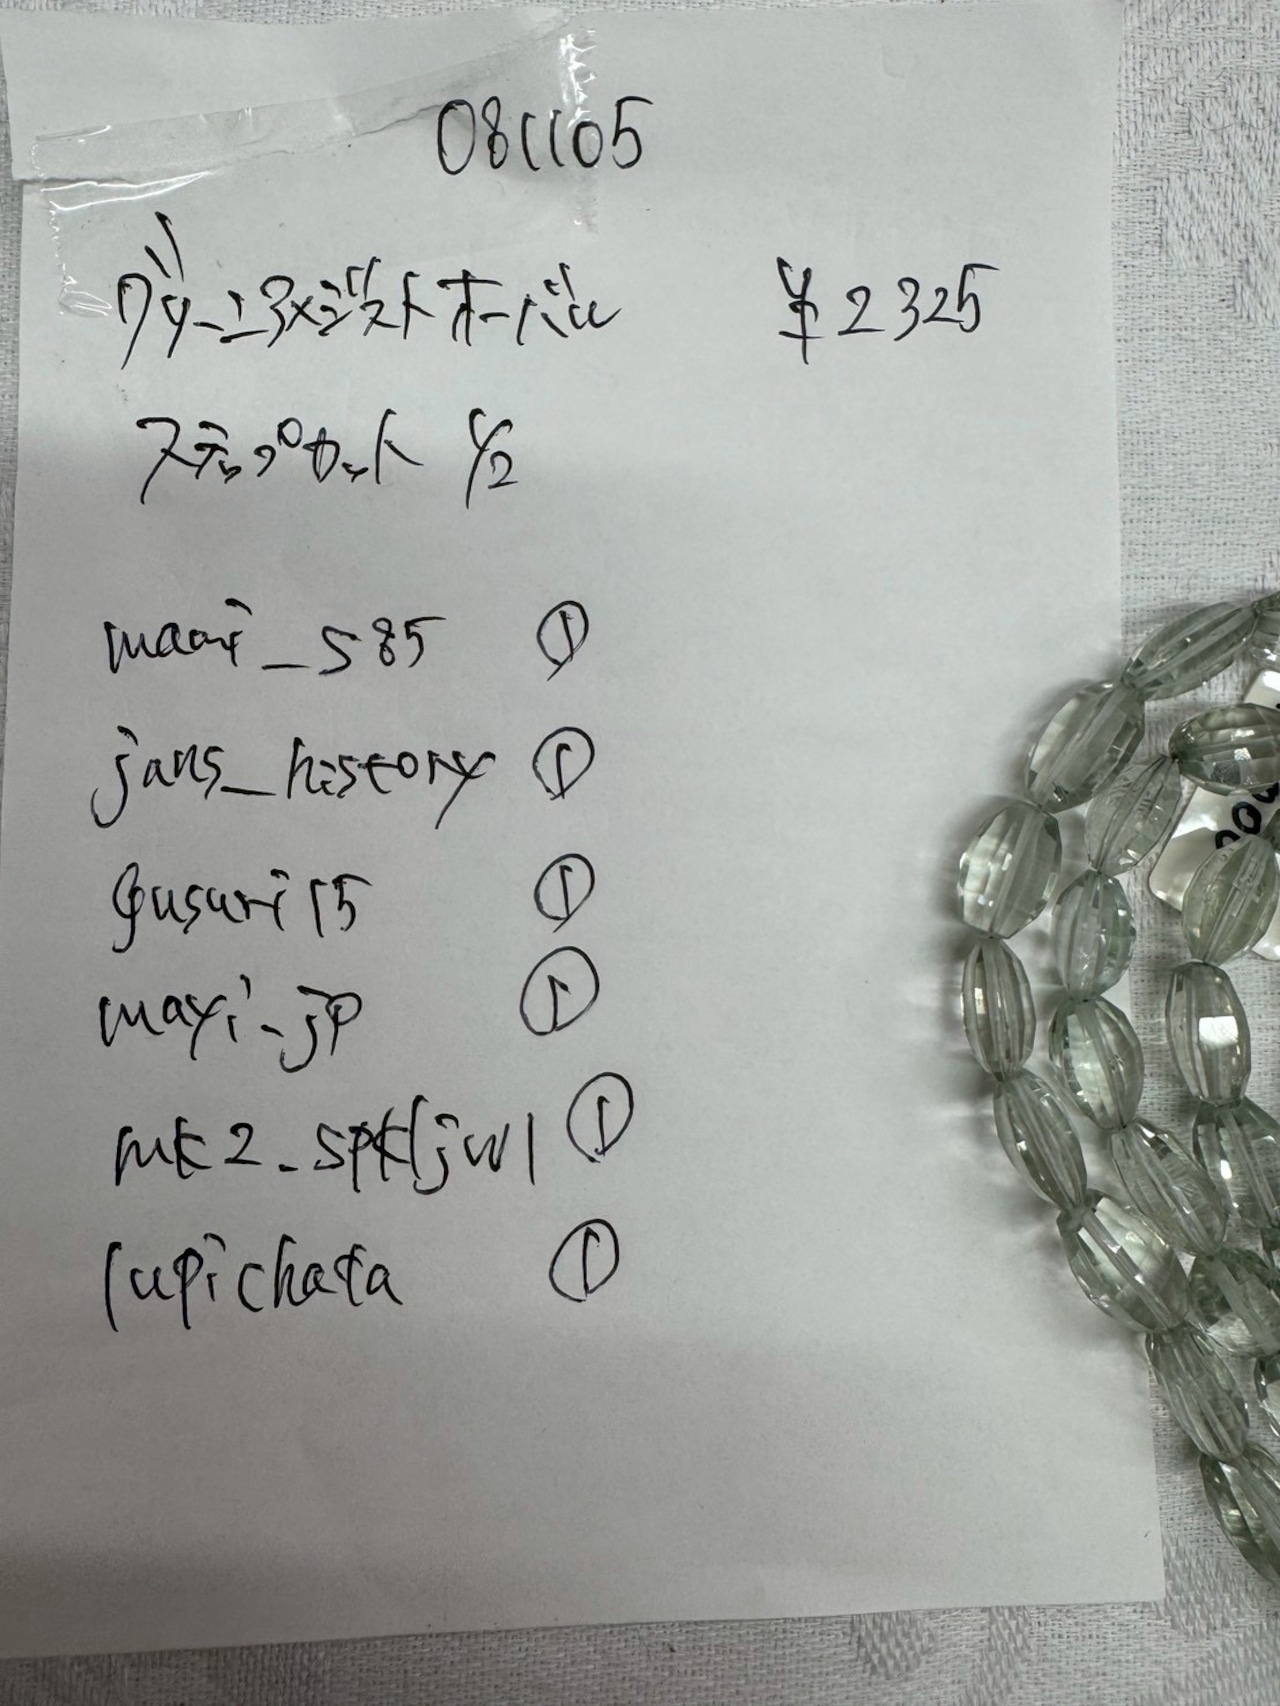 081105
グリーンアメジストオーバル ¥2325
ステップカット 1/2
maari_s85 ①
jans_history ①
gusuri15 ①
mayi_jp ①
mk2_spkljwl ①
lupichata ①
00